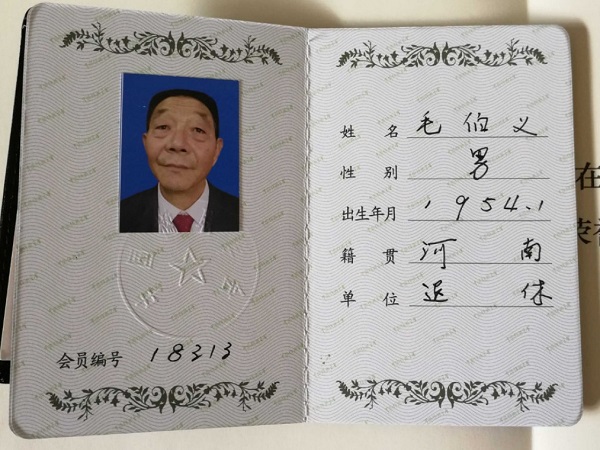 会员编号 18313
姓 名 毛伯义
性 别 男
出生年月 1954.1
籍 贯 河 南
单 位 退 休
在